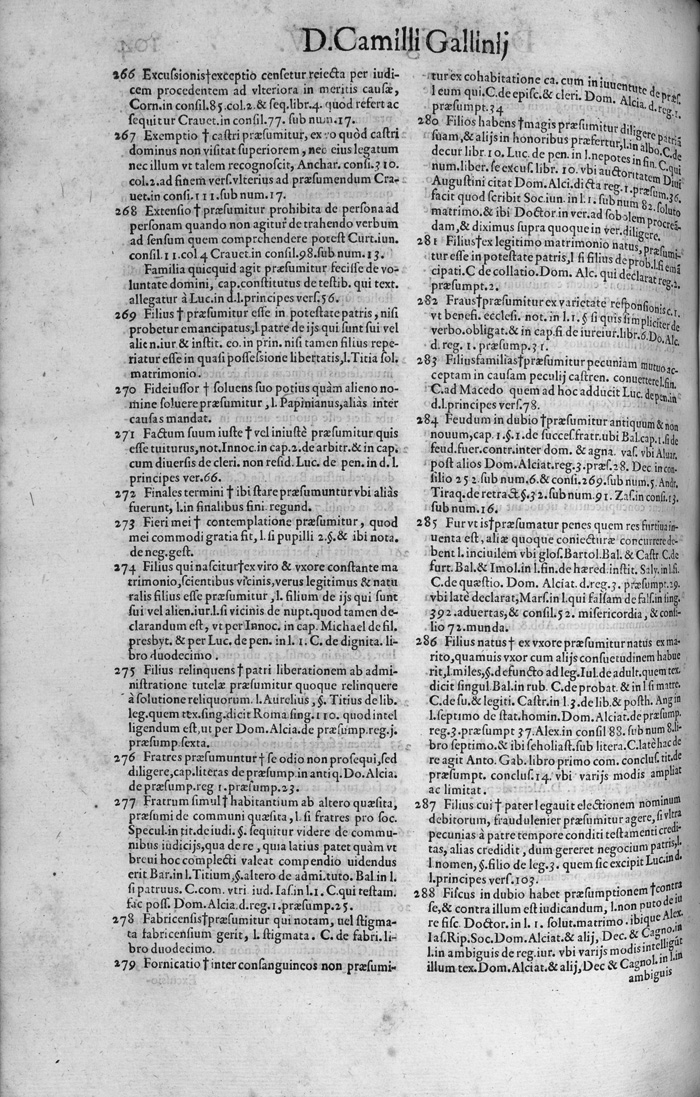 D. Camilli Gallinij
266 Excussionis†exceptio censetur reiecta per iudi-
cem procedentem ad vlteriora in meritis causæ,
Corn.in consil.85.col.2.& seq.libr.4. quod refert ac
sequitur Crauet.in consil.77. sub num.17.
267 Exemptio † castri præsumitur, ex eo quòd castri
dominus non visitat superiorem, nec eius legatum
nec illum vt talem recognoscit, Anchar. consi.310.
col.2.ad finem vers.vlterius ad præsumendum Cra-
uet.in consi.111.sub num.17.
268 Extensio † præsumitur prohibita de persona ad
personam quando non agitur de trahendo verbum
ad sensum quem comprehendere potest Curt.iun.
consil.11.col 4 Crauet.in consil.98.sub num.13.
Familia quicquid agit præsumitur fecisse de vo-
luntate domini, cap.constitutus de testib. qui text.
allegatur à Luc.in d.l.principes vers.56.
269 Filius † præsumitur esse in potestate patris, nisi
probetur emancipatus, l patre de ijs qui sunt sui vel
alien.iur & instit. eo.in prin. nisi tamen filius repe-
riatur esse in quasi possessione libertatis, l. Titia sol.
matrimonio.
270 Fideiussor † soluens suo potius quàm alieno no-
mine soluere præsumitur, l. Papinianus, aliàs inter
causas mandat.
271 Factum suum iuste † vel iniustè præsumitur quis
esse tuiturus, not.Innoc.in cap.2.de arbitr.& in cap.
cum diuersis de cleri. non resid. Luc. de pen.in d. l.
principes ver.66.
272 Finales termini † ibi stare præsumuntur vbi aliàs
fuerunt, l.in finalibus fini. regund.
273 Fieri mei † contemplatione præsumitur, quod
mei commodi gratia fit, l. si pupilli 2.§.& ibi nota.
de neg.gest.
274 Filius qui nascitur†ex viro & vxore constante ma
trimonio, scientibus vicinis, verus legitimus & natu
ralis filius esse præsumitur, l. filium de ijs qui sunt
sui vel alien.iur.l.si vicinis de nupt.quod tamen de-
clarandum est, vt per Innoc. in cap. Michael de fil.
presbyt. & per Luc.de pen.in l. 1. C. de dignita. li-
bro duodecimo.
275 Filius relinquens † patri liberationem ab admi-
nistratione tutelæ præsumitur quoque relinquere
à solutione reliquorum. l. Aurelius, §. Titius de lib.
leg.quem tex.sing.dicit Roma sing.110. quod intel
ligendum est, ut per Dom.Alcia.de præsump.reg.j.
præsump sexta.
276 Fratres præsumuntur † se odio non prosequi, sed
diligere, cap.literas de præsump.in antiq.Do.Alcia.
de præsump.reg 1.præsump.23.
277 Fratrum simul † habitantium ab altero quæsita,
præsumi de communi quæsita, l. si fratres pro soc.
Specul.in tit.de iudi. §. sequitur videre de commu-
nibus iudicijs, qua de re, quia latius patet quàm vt
breui hoc complecti valeat compendio uidendus
erit Bar.in l.Titium, §.altero de admi.tuto. Bal.in l.
si patruus. C.com.vtri iud. Ias.in l.1. C.qui testam.
fac poss. Dom.Alcia.d.reg.1.præsump.25.
278 Fabricensis†præsumitur qui notam, uel stigma-
ta fabricensium gerit, l. stigmata. C. de fabri. li-
bro duodecimo.
279 Fornicatio † inter consanguineos non præsumi-
tur ex cohabitatione ca. cum in iuuentute de præs.
l eum qui.C.de episc.& cleri. Dom. Alcia.d.reg.1.
præsumpt.34
280 Filios habens † magis præsumitur diligere patriā
suam, & alijs in honoribus præfertur, l.in albo.C.de
decur libr.10. Luc. de pen.in l.nepotes in fin.C.qui
num.liber.se excus. libr. 10. vbi auctoritatem Diui
Augustini citat Dom.Alci.dicta reg.1.præsum.36.
facit quod scribit Soc.iun.in l.1. sub num 82.soluto
matrimo. & ibi Doctor in ver.ad sobolem procreā-
dam, & diximus supra quoque in ver.diligere.
281 Filius†ex legitimo matrimonio natus, præsumi-
tur esse in potestate patris, l si filius de prob.l si emā
cipati.C de collatio. Dom. Alc. qui declarat reg.2.
præsumpt.2.
282 Fraus†præsumitur ex varietate responsionis c.1.
vt benefi. ecclesi. not. in l.1.§ si quis simpliciter de
verbo.obligat.& in cap.fi de iureiur.libr.6.Do.Alc.
d. reg.1. præsump.31.
283 Filiusfamilias†præsumitur pecuniam mutuo ac-
ceptam in causam peculij castren. conuertere l.fin.
C.ad Macedo quem ad hoc adducit Luc.de pen.in
d.l.principes vers.78.
284 Feudum in dubio † præsumitur antiquum & non
nouum, cap.1.§.1.de success fratr.ubi Bal.cap.1.si de
feud.fuer.contr.inter dom. & agna. vas. vbi Aluar.
post alios Dom.Alciat.reg.3.præs.28. Dec in con-
silio 252 sub num.6.& consi.269.sub num.5. Andr.
Tiraq.de retract.§.32.sub num.91. Zas.in consi.13.
sub num.16.
285 Fur vt is†præsumatur penes quem res furtiua in-
uenta est, aliæ quoque coniecturæ concurrere de-
bent l.inciuilem vbi glos.Bartol.Bal.& Castr C.de
furt. Bal.& Imol.in l.fin.de hæred.instit. Salv.in l.si
C.de quæstio. Dom. Alciat.d.reg.3. præsumpt.29.
vbi latè declarat, Mars.in l.qui falsam de fals.in sing.
392.aduertas, & consil.52. misericordia, & consi-
lio 72.munda.
286 Filius natus † ex vxore præsumitur natus ex ma-
rito, quamuis vxor cum alijs consuetudinem habue
rit, l.miles, §.defuncto ad leg.Iul.de adult.quem tex.
dicit singul.Bal.in rub. C.de probat. & in l si matre.
C.de su.& legiti. Castr.in l.3.de lib.& posth. Ang in
l.septimo de stat.homin. Dom.Alciat.de præsump.
reg.3.præsumpt 37.Alex.in consil 88. sub num 8.li-
bro septimo.& ibi scholiast.sub litera.C.latè hac de
re agit Anto. Gab. libro primo com. conclus tit.de
præsumpt. conclus.14. vbi varijs modis ampliat
ac limitat.
287 Filius cui † pater legauit electionem nominum
debitorum, fraudulenter præsumitur agere, si vltra
pecunias à patre tempore conditi testamenti credi-
tas, alias credidit, dum gereret negocium patris, l.
l nomen, §.filio de leg.3. quem sic excipit Luc.in d.
l.principes vers.103.
288 Fiscus in dubio habet præsumptionem †contra
se, & contra illum est iudicandum, l.non puto de iu
re fisc. Doctor.in l. 1. solut.matrimo. ibique Alex.
Ias.Rip.Soc.Dom. Alciat.& alij, Dec. & Cagno.in
l.in ambiguis de reg.iur. vbi varijs modis intelligūt
illum tex.Dom.Alciat.& alij, Dec & Cagnol.in l.in
ambiguis